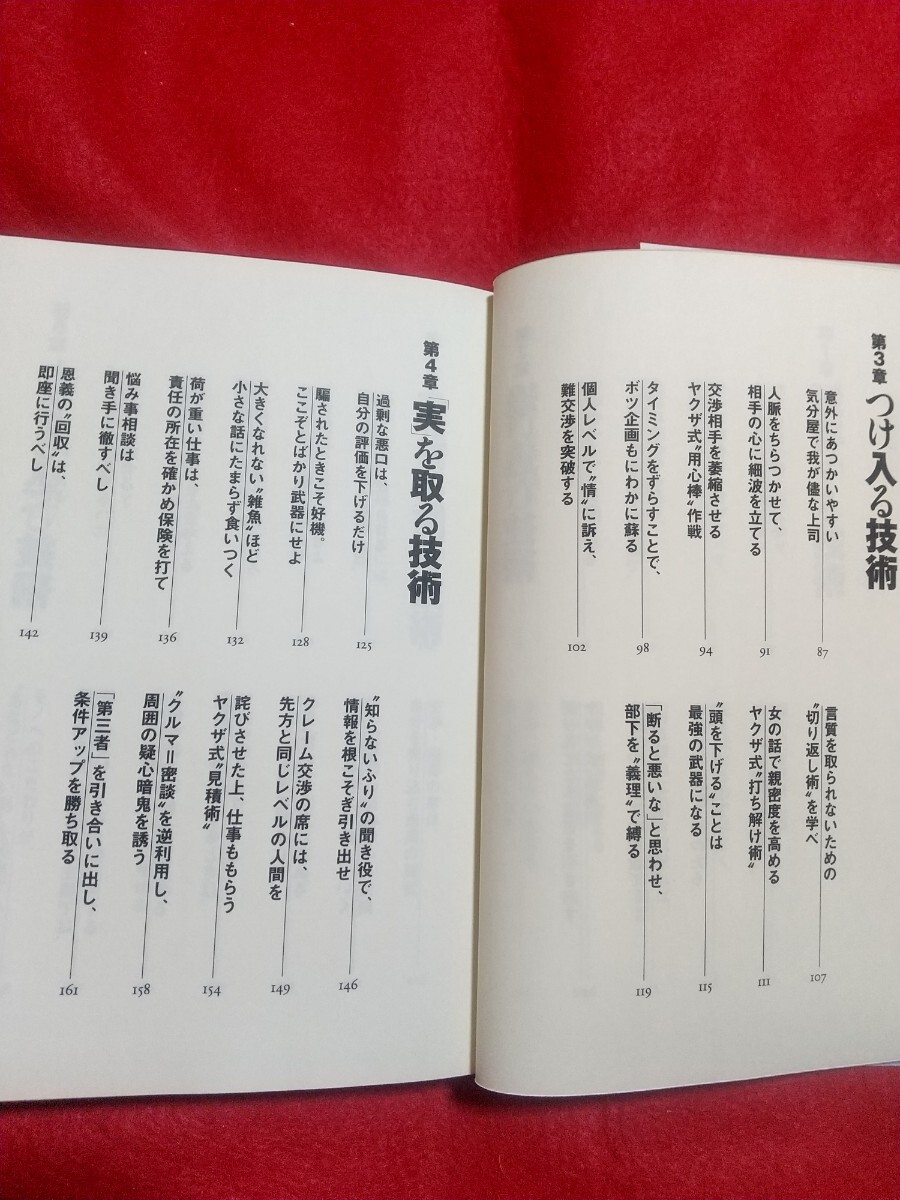 第3章 つけ入る技術
意外にあつかいやすい
気分屋で我が儘な上司
87
人脈をちらつかせて、
相手の心に細波を立てる
91
交渉相手を萎縮させる
ヤクザ式〝用心棒〟作戦
94
タイミングをずらすことで、
ボツ企画もにわかに蘇る
98
個人レベルで〝情〟に訴え、
難交渉を突破する
102
言質を取られないための
〝切り返し術〟を学べ
107
女の話で親密度を高める
ヤクザ式〝打ち解け術〟
111
〝頭を下げる〟ことは
最強の武器になる
115
「断ると悪いな」と思わせ、
部下を〝義理〟で縛る
119
第4章 「実」を取る技術
過剰な悪口は、
自分の評価を下げるだけ
125
騙されたときこそ好機。
ここぞとばかり武器にせよ
128
大きくなれない〝雑魚〟ほど
小さな話にたまらず食いつく
132
荷が重い仕事は、
責任の所在を確かめ保険を打て
136
悩み事相談は
聞き手に徹すべし
139
恩義の〝回収〟は、
即座に行うべし
142
〝知らないふり〟の聞き役で、
情報を根こそぎ引き出せ
146
クレーム交渉の席には、
先方と同じレベルの人間を
149
詫びさせた上、仕事ももらう
ヤクザ式〝見積術〟
154
〝クルマ=密談〟を逆利用し、
周囲の疑心暗鬼を誘う
158
「第三者」を引き合いに出し、
条件アップを勝ち取る
161